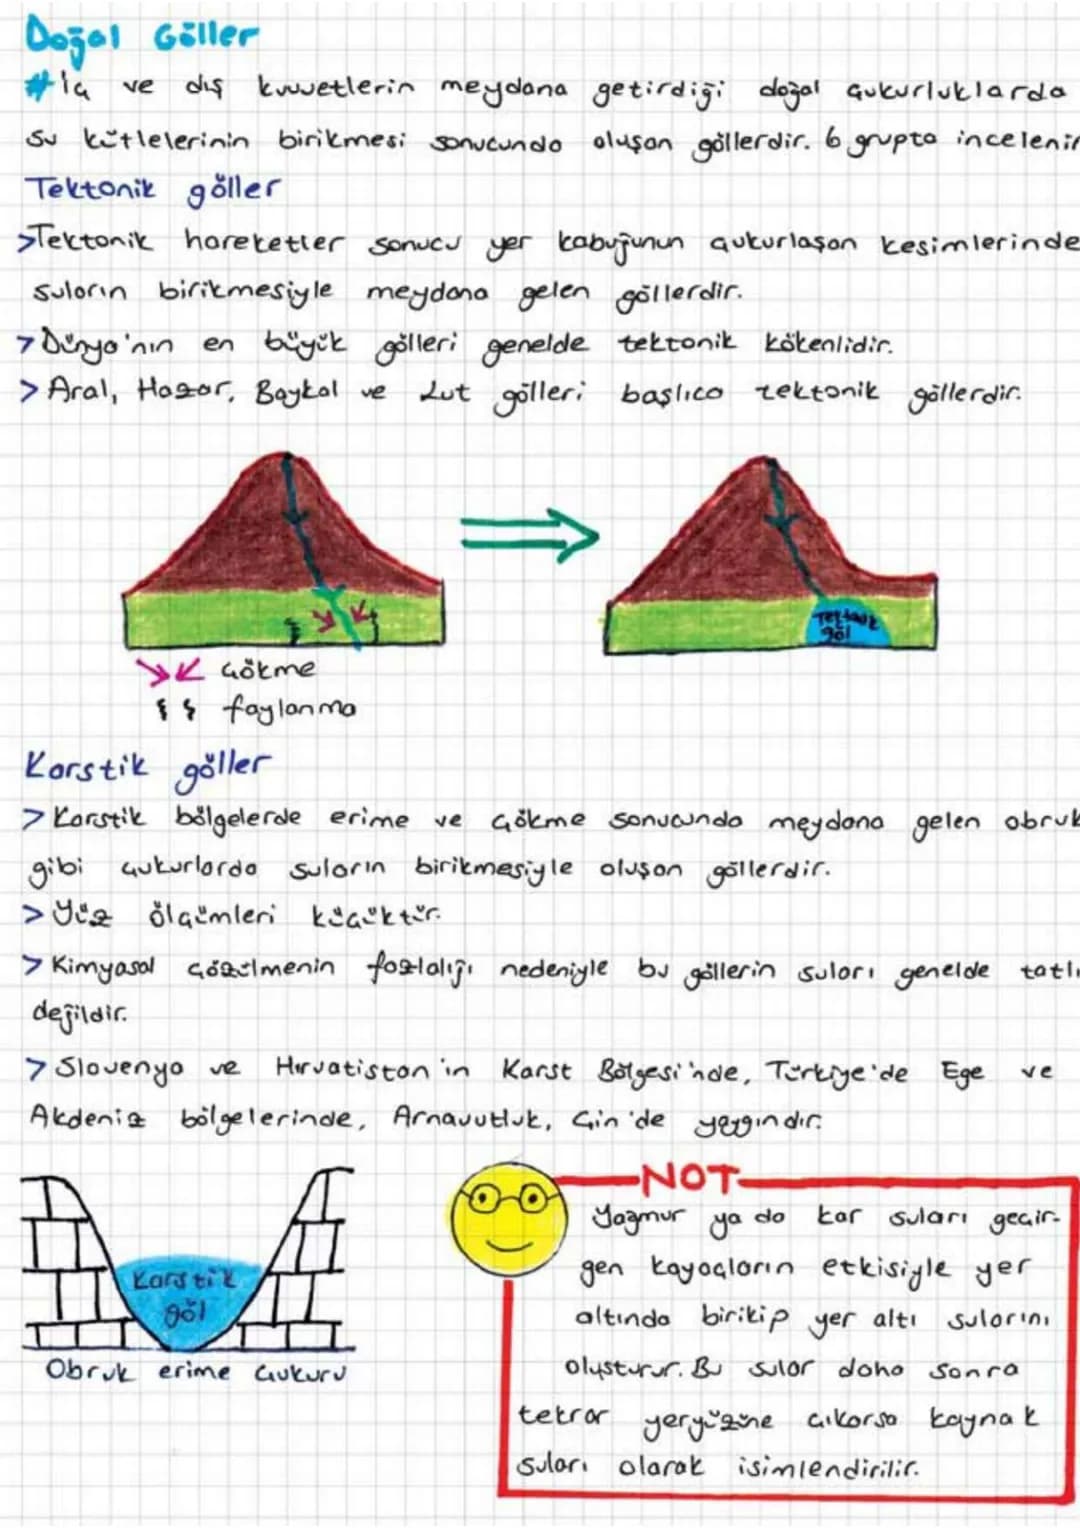 Doğal Göller
# İç ve dış kuvvetlerin meydana getirdiği doğal çukurluklarda
su kütlelerinin birikmesi sonucunda oluşan göllerdir. 6 grupta incelenir
Tektonik göller
>Tektonik hareketler sonucu yer kabuğunun çukurlaşan kesimlerinde
suların birikmesiyle meydana gelen göllerdir.
> Dünya'nın en büyük gölleri genelde tektonik kökenlidir.
> Aral, Hazar, Baykal ve Lut gölleri başlıca tektonik göllerdir.
Tektonik
göl
Çökme
faylanma
Karstik göller
> Karstik bölgelerde erime ve çökme sonucunda meydana gelen obruk
gibi çukurlarda suların birikmesiyle oluşan göllerdir.
> Yüz ölçümleri küçüktür.
> Kimyasal çözülmenin fazlalığı nedeniyle bu göllerin suları genelde tatlı
değildir.
> Slovenya ve Hırvatistan'ın Karst Bölgesi'nde, Türkiye'de Ege ve
Akdeniz bölgelerinde, Arnavutluk, Çin'de yaygındır.
Karstik
göl
Obruk erime çukuru
NOT
Yağmur ya da kar suları geçir-
gen kayaçların etkisiyle yer
altında birikip yer altı sularını
oluşturur. Bu sular daha sonra
tekrar yeryüzüne çıkarsa kaynak
suları olarak isimlendirilir.